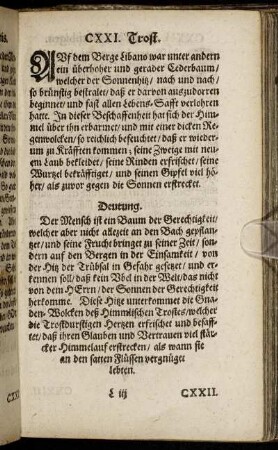 CXXI. Trost.
AUf dem Berge Libano war unter andern
ein überhoher und gerader Cederbaum/
welcher der Sonnenhitz/ nach und nach/
so brünstig bestralet/ daß er darvon auszudorren
beginnet/ und fast allen Lebens-Safft verlohren
hatte. In dieser Beschaffenheit hat sich der Him-
mel über ihn erbarmet/ und mit einer dicken Re-
genwolcken/ so reichlich befeuchtet/ daß er wieder-
um zu Kräfften kommen/ seine Zweige mit neu-
em Laub bekleidet/ seine Rinden erfrischet/ seine
Wurtzel bekräfftiget/ und seinen Gipfel viel hö-
her/ als zuvor gegen die Sonnen erstrecket.
Deutung.
Der Mensch ist ein Baum der Gerechtigkeit/
welcher aber nicht allzeit an den Bach gepflan-
tzet/ und seine Frucht bringet zu seiner Zeit/ son-
dern auf den Bergen in der Einsamkeit/ von
der Hitz der Trübsal in Gefahr gesetzet/ und er-
kennen soll/ daß kein Übel in der Welt/ das nicht
von dem HErrn/ der Sonnen der Gerechtigkeit
herkomme. Diese Hitze unterkommet die Gna-
den-Wolcken deß Himmlischen Trostes/ welcher
die Trostdurstigen Hertzen erfrischet und besafft-
et/ daß ihren Glauben und Vertrauen viel stär-
cker Himmelauf erstrecken/ als wann sie
an den satten Flüssen vergnüget
lebten.
L iij CXXII.